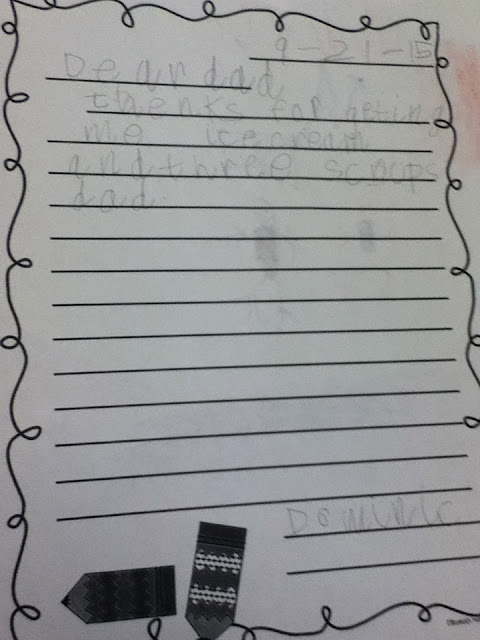 9-21-15
Dear dad
thenks for geting
me icecream
and three scoops
dad.
Dominic